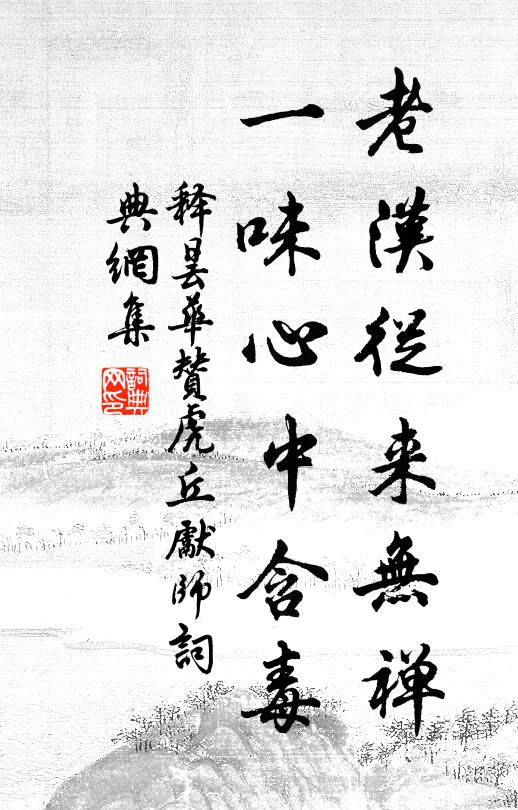 老漢從来無禅
一味心中含毒
释曇華贊虎丘獻師詞
典網集
詞典網印